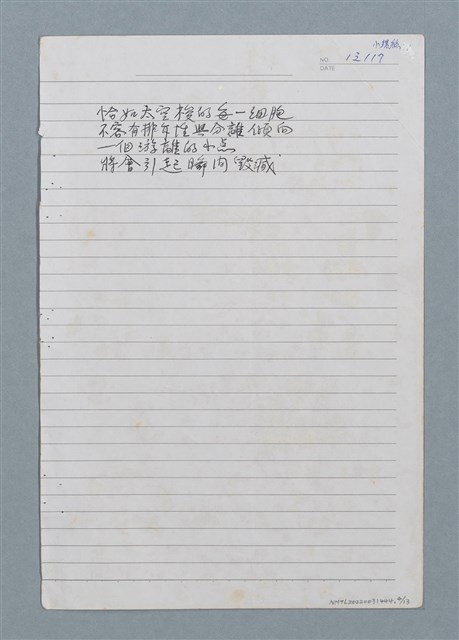 NO.
DATE
恰如太空梭的每一細胞
不容有排斥性與分離傾向
一個游離的小点
將會引起瞬間毀滅